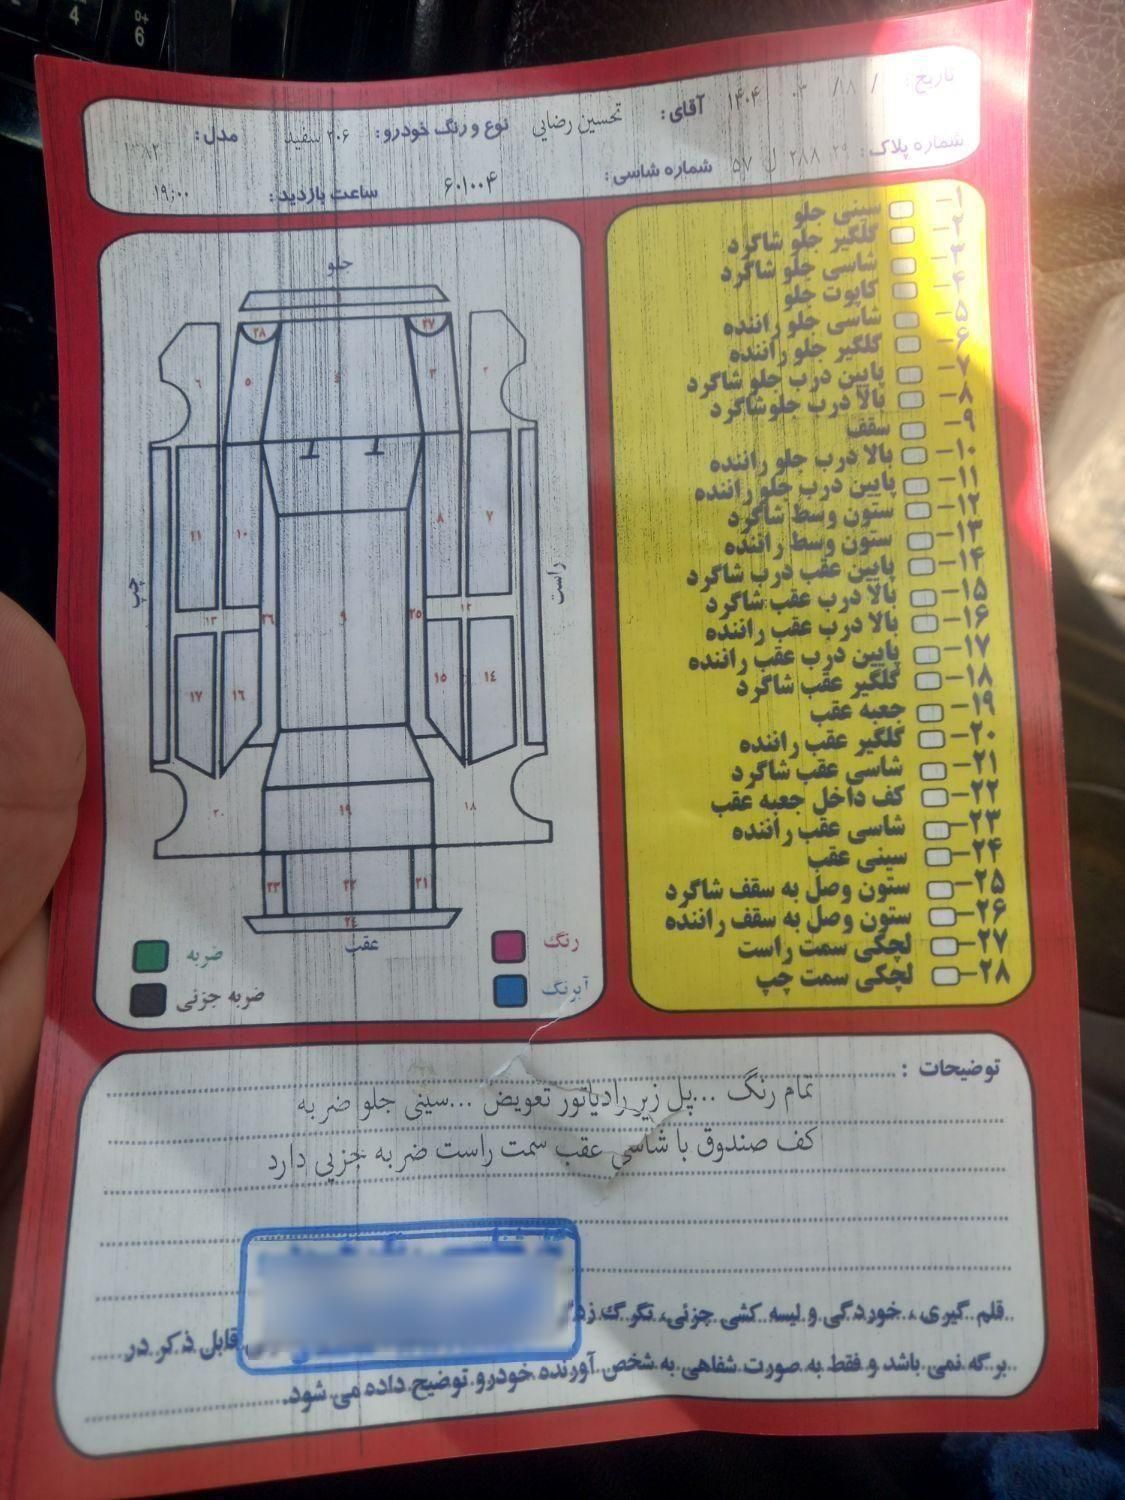 تاریخ: / ۱۸/ ۰۳ ۱۴۰۴ آقای: تحسین رضایی نوع و رنگ خودرو: ۲۰۶ سفید مدل: ۱۳۸۲
شماره پلاک: ۲۹ ۲۸۸ ل ۵۷ شماره شاسی: ۶۰۱۰۰۴ ساعت بازدید: ۱۹:۰۰
۱- سینی جلو
۲- گلگیر جلو شاگرد
۳- شاسی جلو شاگرد
۴- کاپوت جلو
۵- شاسی جلو راننده
۶- گلگیر جلو راننده
۷- پایین درب جلو شاگرد
۸- بالا درب جلوشاگرد
۹- سقف
۱۰- بالا درب جلو راننده
۱۱- پایین درب جلو راننده
۱۲- ستون وسط شاگرد
۱۳- ستون وسط راننده
۱۴- پایین عقب درب شاگرد
۱۵- بالا درب عقب شاگرد
۱۶- بالا درب عقب راننده
۱۷- پایین درب عقب راننده
۱۸- گلگیر عقب شاگرد
۱۹- جعبه عقب
۲۰- گلگیر عقب راننده
۲۱- شاسی عقب شاگرد
۲۲- کف داخل جعبه عقب
۲۳- شاسی عقب راننده
۲۴- سینی عقب
۲۵- ستون وصل به سقف شاگرد
۲۶- ستون وصل به سقف راننده
۲۷- لچکی سمت راست
۲۸- لچکی سمت چپ
جلو
۲۷ ۲۸
۲ ۳ ۴ ۵ ۶
۷ ۸ ۱۰ ۱۱
راست چپ
۱۲ ۲۵ ۹ ۲۶ ۱۳
۱۴ ۱۵ ۱۶ ۱۷
۱۸ ۱۹ ۲۰
۲۱ ۲۲ ۲۳
۲۴
عقب
رنگ ضربه
آبرنگ ضربه جزئی
توضیحات :
تمام رنگ ...پل زیر رادیاتور تعویض ...سینی جلو ضربه
کف صندوق با شاسی عقب سمت راست ضربه جزیی دارد
قلم گیری، خوردگی و لیسه کشی جزئی، تگرگ
قابل ذکر در
برگه نمی باشد و فقط به صورت شفاهی به شخص آورنده خودرو توضیح داده می شود.
6
4